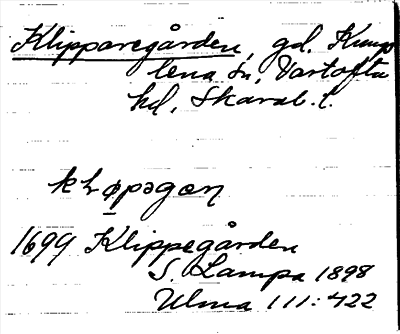 Klipparegården, gd. Kunga
lena sn, Vartofta
hd, Skarab. l.
1699 Klippegården
S. Lampa 1898
Ulma 111:422